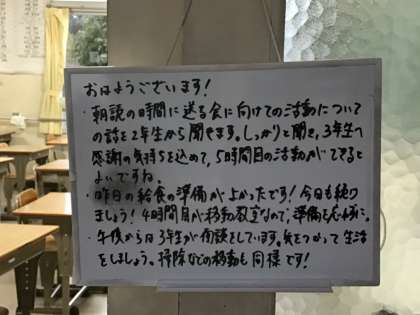 おはようございます!
・朝読の時間に送る会に向けての活動について
の話を2年生から聞きます。しっかりと聞き、3年生へ
感謝の気持ちを込めて、5時間目の活動ができると
よいですね。
・昨日の給食の準備がよかったです!今日も続り
ましょう!4時間目が移動教室なので、準備も忘れずに。
・午後からは3年生が面談をしています。気をつかって生活
をしましょう。掃除などの移動も同様です!